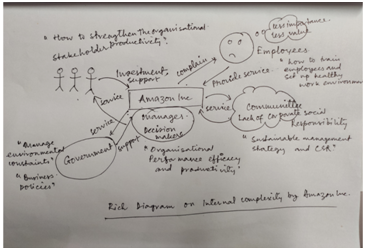 "How to strengthen the organisational
stakeholder productivity?"
less importance
less value
Employees
"how to train
employees and
set up healthy
work environment
Investment,
support
complain
Provide service
service
Amazon Inc
service
Communities
Lack of corporate social
Responsibility
Managers
Decision
makers
service
support
"Sustainable management
strategy and CSR"
"Manage
environmental
constraints"
Government
"Organisational
Performance efficacy
and productivity"
"Business
policies"
Rich Diagram on Internal complexity by Amazon Inc.